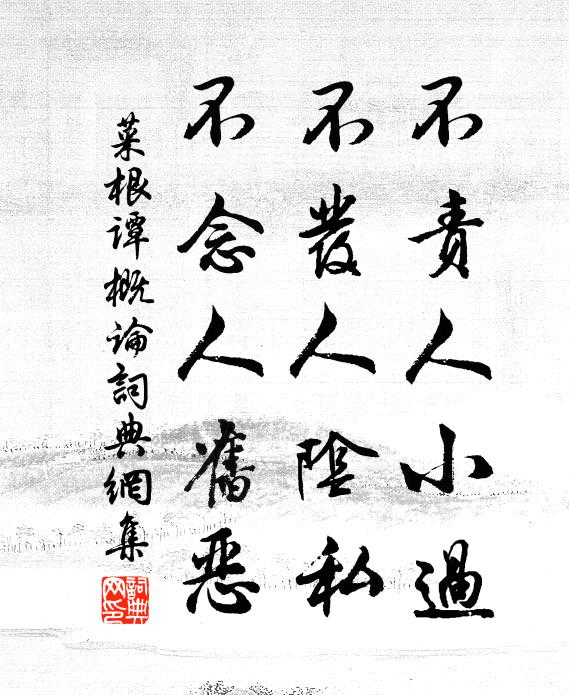 不責人小過
不發人陰私
不念人舊惡
菜根譚概論詞典網集
詞典
网印